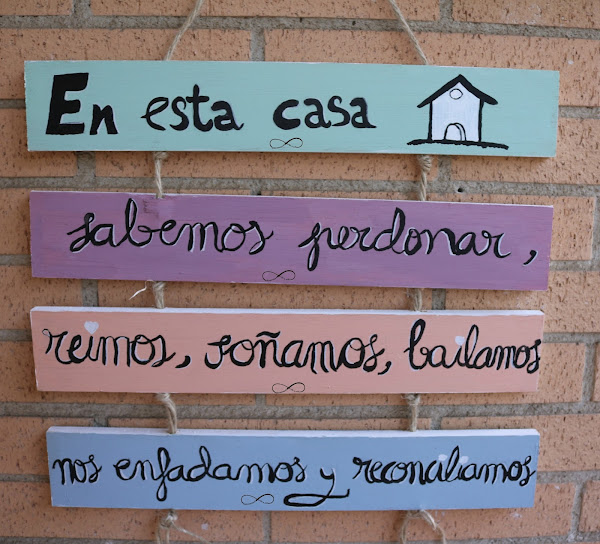 En esta casa
sabemos perdonar,
reimos, soñamos, bailamos
nos enfadamos y reconciliamos